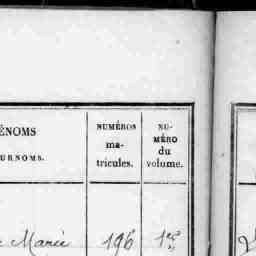 ÉNOMS
URNOMS.
NUMÉROS
ma-
tricules.
NU-
MÉRO
du
volume.
Marie 196 1er